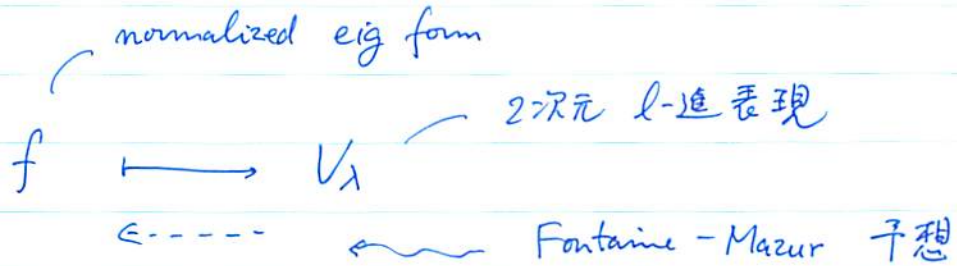 normalized eig form
2次元 l-進表現
f ⟼ V_λ
⇠ Fontaine-Mazur 予想